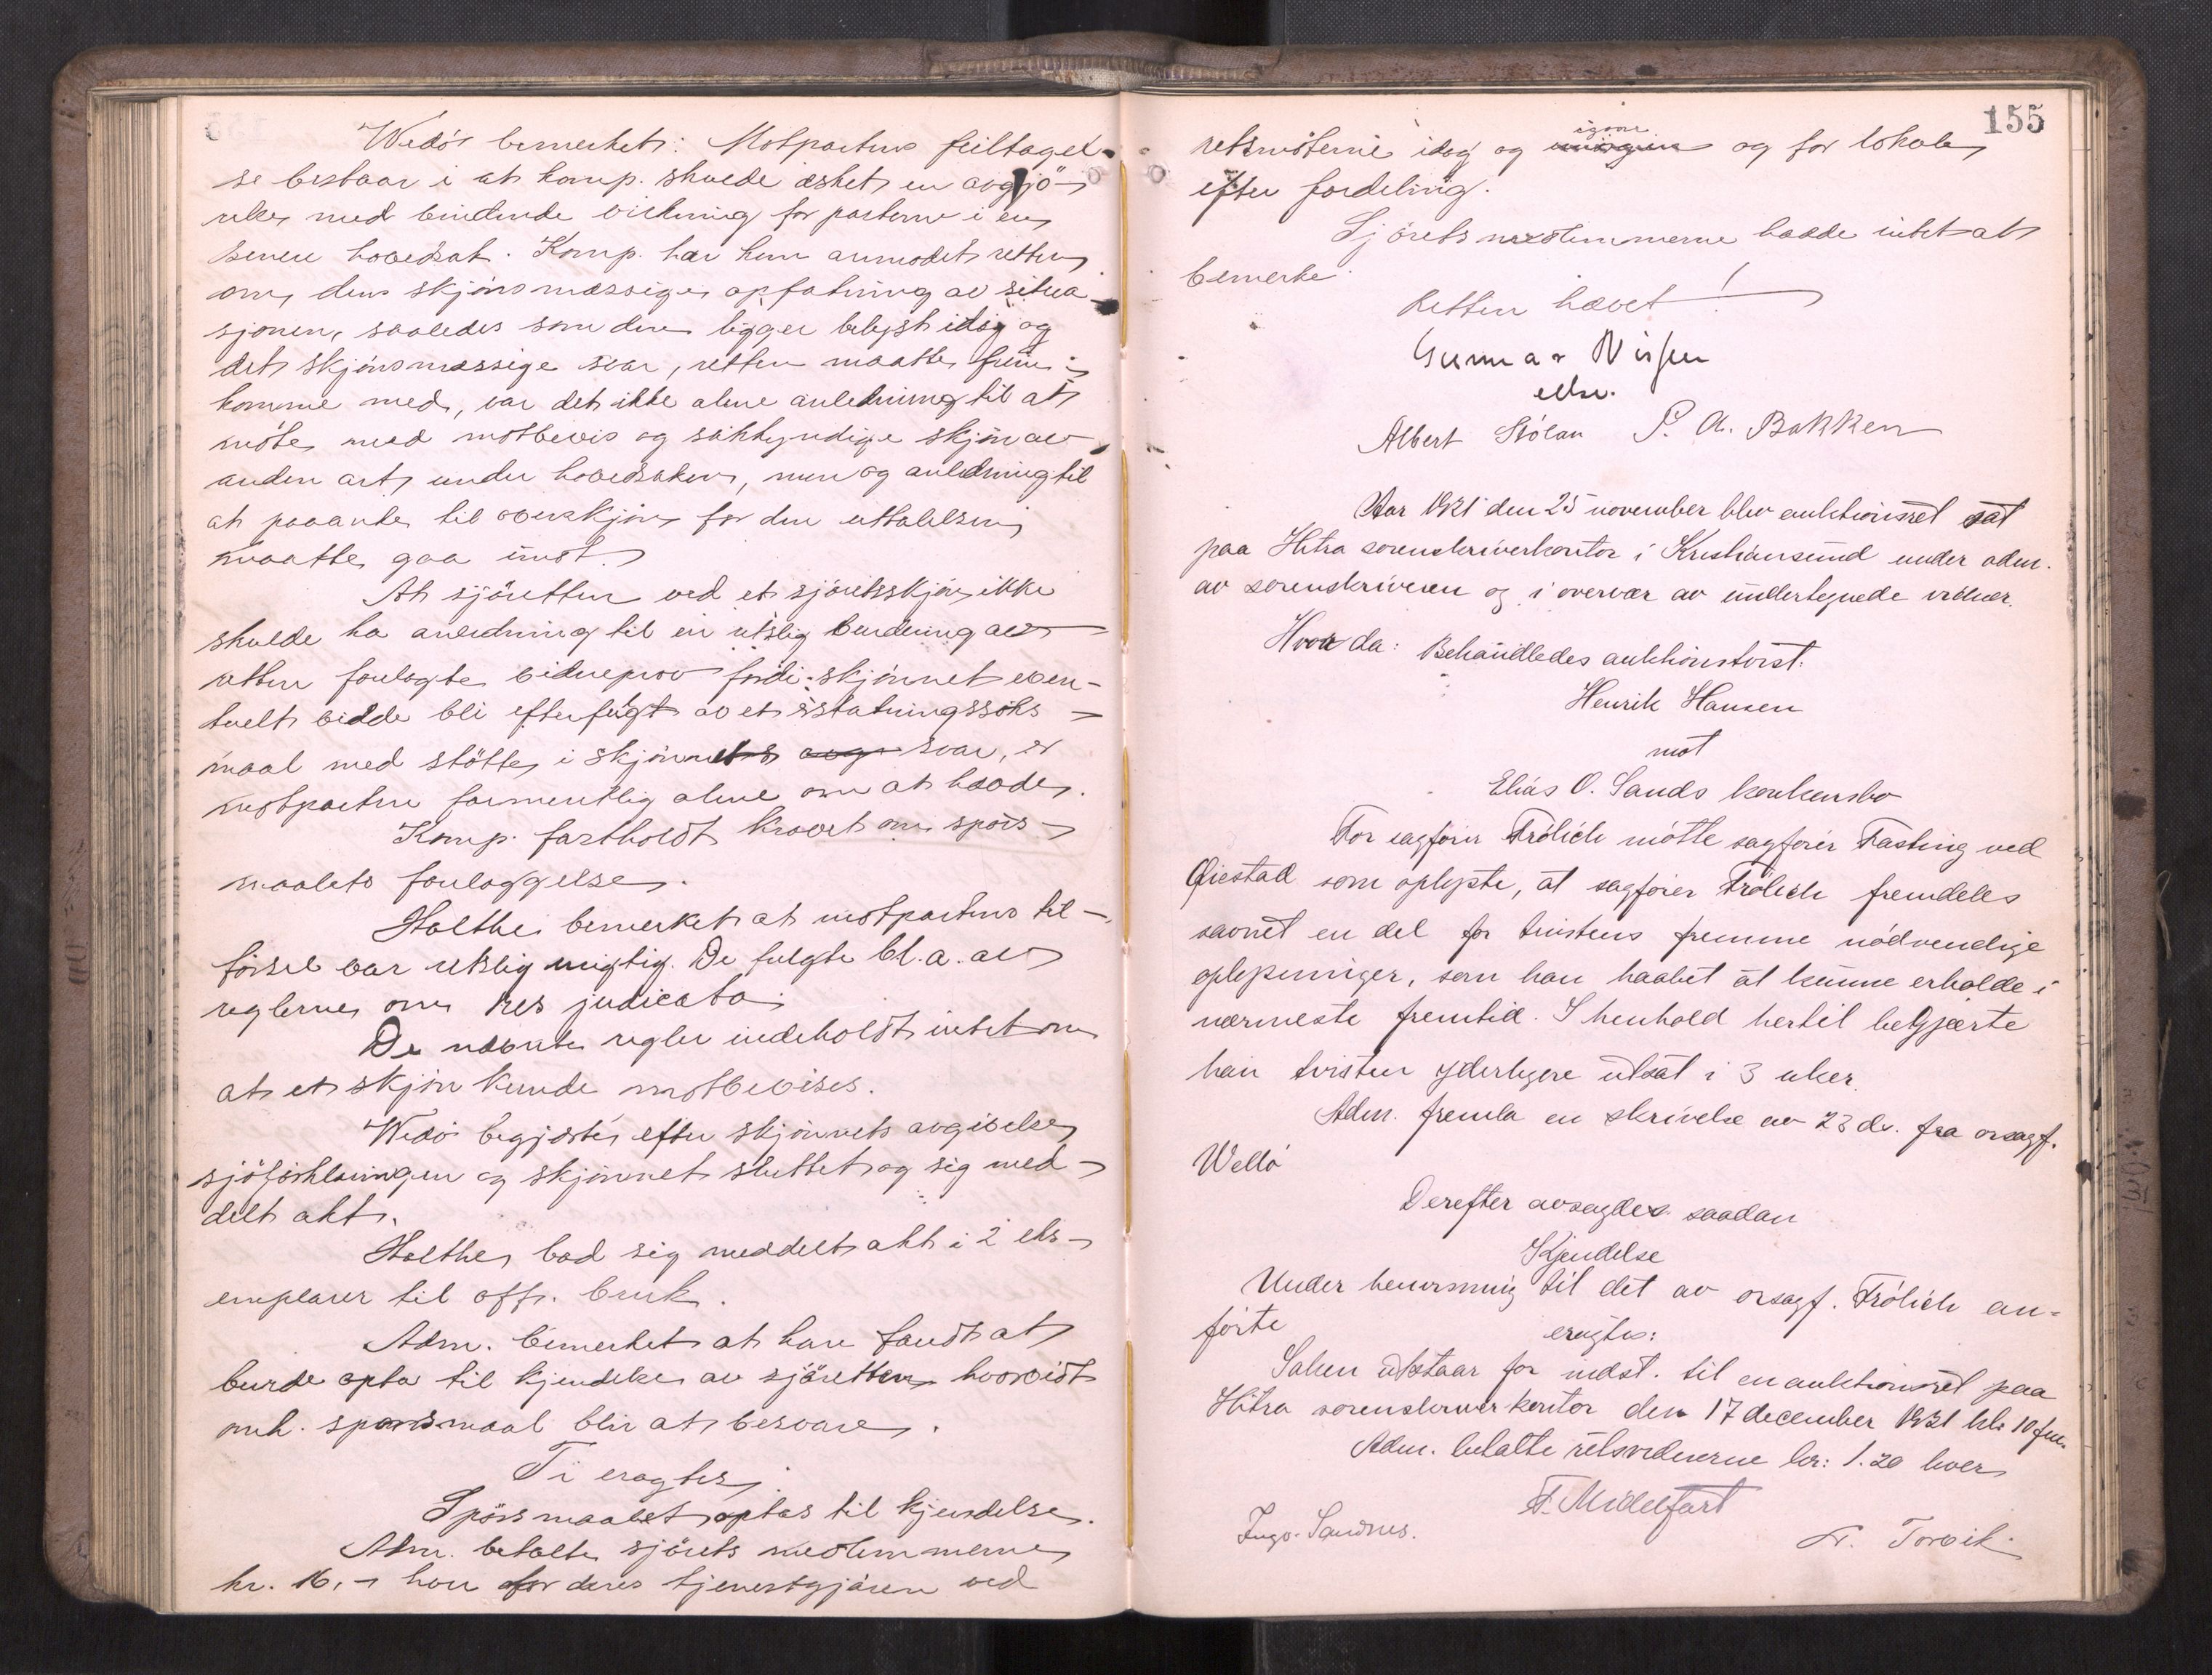 Wedø bemerket: Motpartens feiltagel-
se bestaar i at komp. skulde æsket en avgjö-
relse med bindende virkning for parterne i en
senere hovedsak. Komp. har kun anmodet retten
om dens skjönsmæssige opfatning av situa-
sjonen, saaledes som den ligger belyst idag og
det skjönsmæssige svar, retten maatte frem-
komme med, var det ikke alene anledning til at
möte med motbevis og sakkyndige skjön av
anden art under hovedsaken, men og anledning til
at paaanke til overskjön for den uttalelsen
maatte gaa imot.
At sjöretten ved et sjöretsskjön ikke
skulde ha anledning til en utslig bedömning av
retten forelagte vidneprov fordi skjönnet even-
tuelt vilde bli efterfulgt av et erstatningssöks-
maal med stötte i skjönnets svar, er
motparten formentlig alene om at hævde.
Komp. fastholdt kravet om spörs-
maalets foreleggelse.
Holthe bemerket at motpartens til-
försel var retslig uriktig. De fulgte bl.a. av
reglerne om res judicata.
De nævnte regler indeholdt intet om
at et skjön kunde motbevises.
Wedø begjærte efter skjönnets avgivelse
sjöforklaringen og skjönnet sluttet og sig med-
delt akt.
Holthe bad sig meddelt akt i 2 eks-
emplarer til off. bruk.
Adm. bemerket at han fandt at
burde opta til kjendelse av sjöretten hvorvidt
omh. spörsmaal blir at besvare.
Ti eragtes:
Spörsmaalet optas til kjendelse.
Adm. betalte sjörets medlemmerne
kr. 16,- hver for deres tjenestgjören ved
155
igaar
retsmöterne idag og og for lokale
efter fordeling.
Sjöretsmedlemmerne hadde intet at
bemerke.
Retten hævet!
Gunnar Nissen
edsv.
Albert Stölan P. A. Bakken
Aar 1921 den 25 november blev auktionsret sat
paa Hitra sorenskriverkontor i Kristiansund under adm.
av sorenskriveren og i overvær av undertegnede vidner.
Hvor da: Behandledes auktionstvist:
Henrik Hansen
mot
Elias O. Sands konkursbo
For sagförer Frölich mötte sagförer Fasting ved
Qvistad som oplyste, at sagförer Frölich fremdeles
savnet en del for tvistens fremme nödvendige
oplysninger, som han haabet at kunne erholde i
nærmeste fremtid. I henhold hertil begjærte
han tvisten yderligere utsat i 3 uker.
Adm. fremla en skrivelse av 23 ds. fra orsagf.
Wellö
Derefter avsagdes saadan
Kjendelse
Under henvisning til det av orsagf. Frölich an-
förte
eragtes:
Saken utstaar for indst. til en auktionsret paa
Hitra sorenskriverkontor den 17 december 1921 kl. 10 fm.
Adm. betalte retsvidnerne kr: 1.20 hver
F. Midelfart
Ingv. Sandnes. N. Torvik.